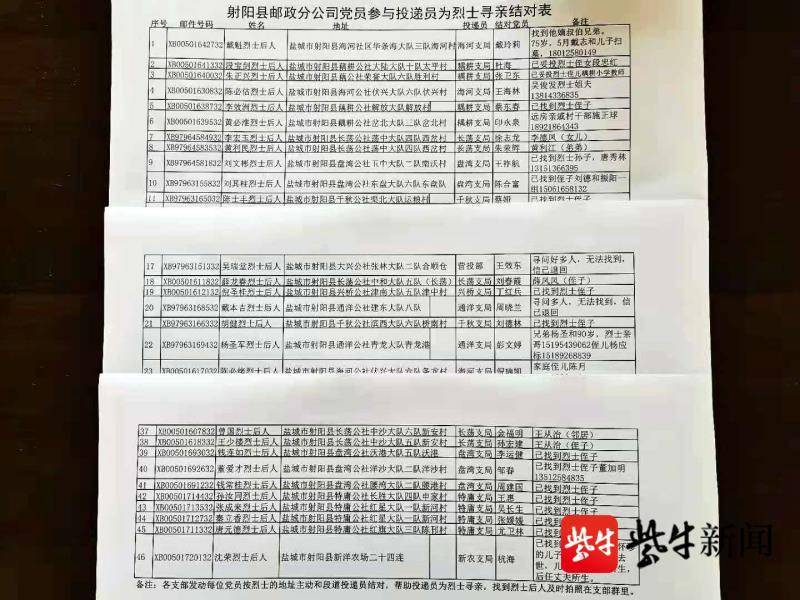 射阳县邮政分公司党员参与投递员为烈士寻亲结对表
序号 邮件号码 姓名 地址 投递员 结对党员 备注
找到他嫡叔伯兄弟,
1 XB00501642732 戴魁烈士后人 盐城市射阳县海河社区华条海大队三队海河村 海河支局 戴玲莉 75岁,5月戴志和儿子扫
墓,18012580149
2 XB00501641332 段宝剑烈士后人 盐城市射阳县耦耕公社大陆大队十队太平村 耦耕支局 杜海 已妥投烈士侄女段忠红
3 XB00501640032 朱正兴烈士后人 盐城市射阳县藕公社荣誉大队六队胜利村 耦耕支局 张卫东 已妥投烈士侄儿耦耕小学教师
4 XB00501639332 陈必估烈士后人 盐城市射阳县耦耕公社伏兴大队伏大队伏兴村 耦耕支局 王海林 吴俊发烈士姐夫
13814336835
5 XB00501638732 李效洲烈士后人 盐城市射阳县藕耕公社解放大队解放村 耦耕支局 蔡东春 已找到烈士侄子
6 XB00501639332 黄必淮烈士后人 盐城市射阳县藕耕公社岔北大队三队岔北村 耦耕支局 印永泉 远房亲戚村干部施正球
18921864343
7 XB97964584932 李宏玉烈士后人 盐城市射阳县长荡公社荡中大队四队西岔村 长荡支局 徐志龙 李德凤(女儿)
8 XB97964583532 黄利民烈士后人 盐城市射阳县长荡公社荡中大队四队西岔村 长荡支局 朱荣辉 黄利江(弟弟)
9 XB97964581832 刘文彬烈士后人 盐城市射阳县盘湾公社玉中大队二队南沃村 盘湾支局 王祚航 已找到烈士孙子,唐秀林
13151366395
10 XB97963155832 刘其柱烈士后人 盐城市射阳县盘湾公社东盘大队六队东盘队 盘湾支局 陈合富 已找到侄子刘德和振阳一
组15061658132
11 XB97963165032 陈士丰烈士后人 盐城市射阳县千秋公社渠北大队运粮村 千秋支局 蔡娅 已找到烈士侄子
17 XB97963151332 吴瑞堂烈士后人 盐城市射阳县大兴公社张林大队二队合顺仓 营投部 王效东 寻问好多人,无法找到,
信已退回
18 XB00501611832 薛龙春烈士后人 盐城市射阳县长荡公社中和大队五队(长荡) 长荡支局 刘春霞 薛凤凤(侄子)
19 XB00501612132 倪圣桂烈士后人 盐城市射阳县兴桥公社津南大队五队津中村 兴桥支局 丁红兵 已找到烈士侄子
20 XB97963168532 戴本古烈士后人 盐城市射阳县通洋公社建东大队八队 通洋支局 周晓兰 寻问多人,无法找到,信
已退回
21 XB97963166332 胡健烈士后人 盐城市射阳县千秋公社滨西大队六队桥南村 千秋支局 刘德林 已找到烈士侄子
22 XB97963169432 杨圣军烈士后人 盐城市射阳县通洋公社青龙大队青龙港 通洋支局 彭文婷 兄弟杨圣和90岁,烈士亲
哥15195439062侄儿杨应
标15189268839
23 XB00501617032 陈必禄烈士后人 海河支局 倪瑞凯 家庭侄儿陈月
37 XB00501607832 曾国烈士后人 盐城市射阳县长荡公社中沙大队六队新安村 长荡支局 余福明 王从治(邻居)
38 XB00501618332 王少楼烈士后人 盐城市射阳县长荡公社中沙大队五队新安村 长荡支局 孙宏建 王从治(侄子)
39 XB00501693032 钱连如烈士后人 盐城市射阳县盘湾公社沃港大队五队沃港 盘湾支局 李运健 已找到烈士侄子
40 XB00501692632 董爱才烈士后人 盐城市射阳县盘湾公社洋沙大队二队洋沙村 盘湾支局 邹春 已找到烈士侄子董加明
13512584835
41 XB00501691232 钱常桂烈士后人 盐城市射阳县盘湾公社腰湾大队二队腰港村 盘湾支局 周建国 已找到烈士侄子
42 XB00501714432 孙汝同烈士后人 盐城市射阳县特庸公社长胜大队四队中家村 特庸支局 王惠 已找到烈士侄子
43 XB00501713532 张成来烈士后人 盐城市射阳县特庸公社红星大队一队新河村 特庸支局 吴长生 已找到烈士侄子
44 XB00501712732 秦立香烈士后人 盐城市射阳县特庸公社红星大队一队新河村 特庸支局 张媛媛 已找到
45 XB00501717332 唐元德烈士后人 盐城市射阳县特庸公社红旗大队三队陈阳村 特庸支局 尤卫林 已找到
46 XB00501720132 沈荣烈士后人 盐城市射阳县新洋农场二十四连 新农支局 杭海
后任丈夫所生。
备注:各支部发动每位党员按烈士的地址主动和段道投递员结对,帮助投递员为烈士寻亲,找到烈士后人及时拍照在支部群里。
紫牛 紫牛新闻